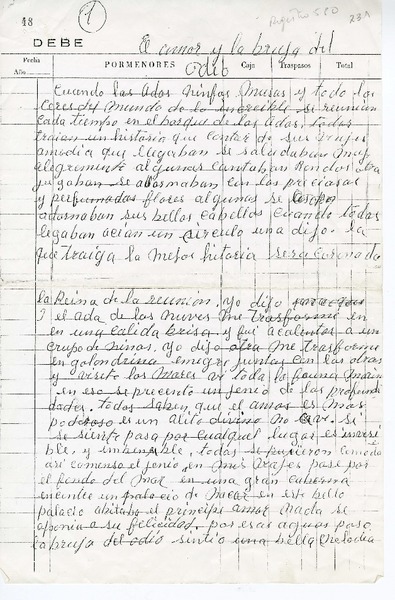 48
1
DEBE
El amor y la bruja del
Odio
Fecha
Año
PORMENORES
Caja
Traspasos
Total
Cuando las Adas ninfas, Musas y todo los
Ceres del Mundo de lo increible se reunian
cada tiempo en el bosque de las Adas. todas
traian un historia que contar de sus viajes
amedia que llegaban se saludaban muy
elegremente algunas cantaban Rondos otra
jugaban se adornaban con las preciosas
y perfumadas flores algunas se
adornaban sus bellos cabellos Cuando todas
llegaban acian un sirculo una dijo. la
que traiga la mejor historia sera coronada
la Reina de la reunion. Yo dijo
el ada de las nuves me trasforme en
en una calida brisa y fui acalentar a un
Grupo de ninos. Yo dijo otra me trasforme
en golondrina emigre juntas con las otras
y visite los Mares vi toda la fauna Marin
en eso se precento un jenio de las profundi
dades. todos saben que el amor es mas
poderoso es un alito divino no se ve. si
se siente pasa por cualquel lugar es invisi
ble, y todas se pusieron comoda
asi comenso el jenio en mis viajes pase por
el fondo del Mar en una gran caberna
encontre un palacio de Nacar en este bello
palacio abitaba el principe amor nada se
aponia a su felicidad. por esas aguas paso
la bruja del odio sintio una bella melodia